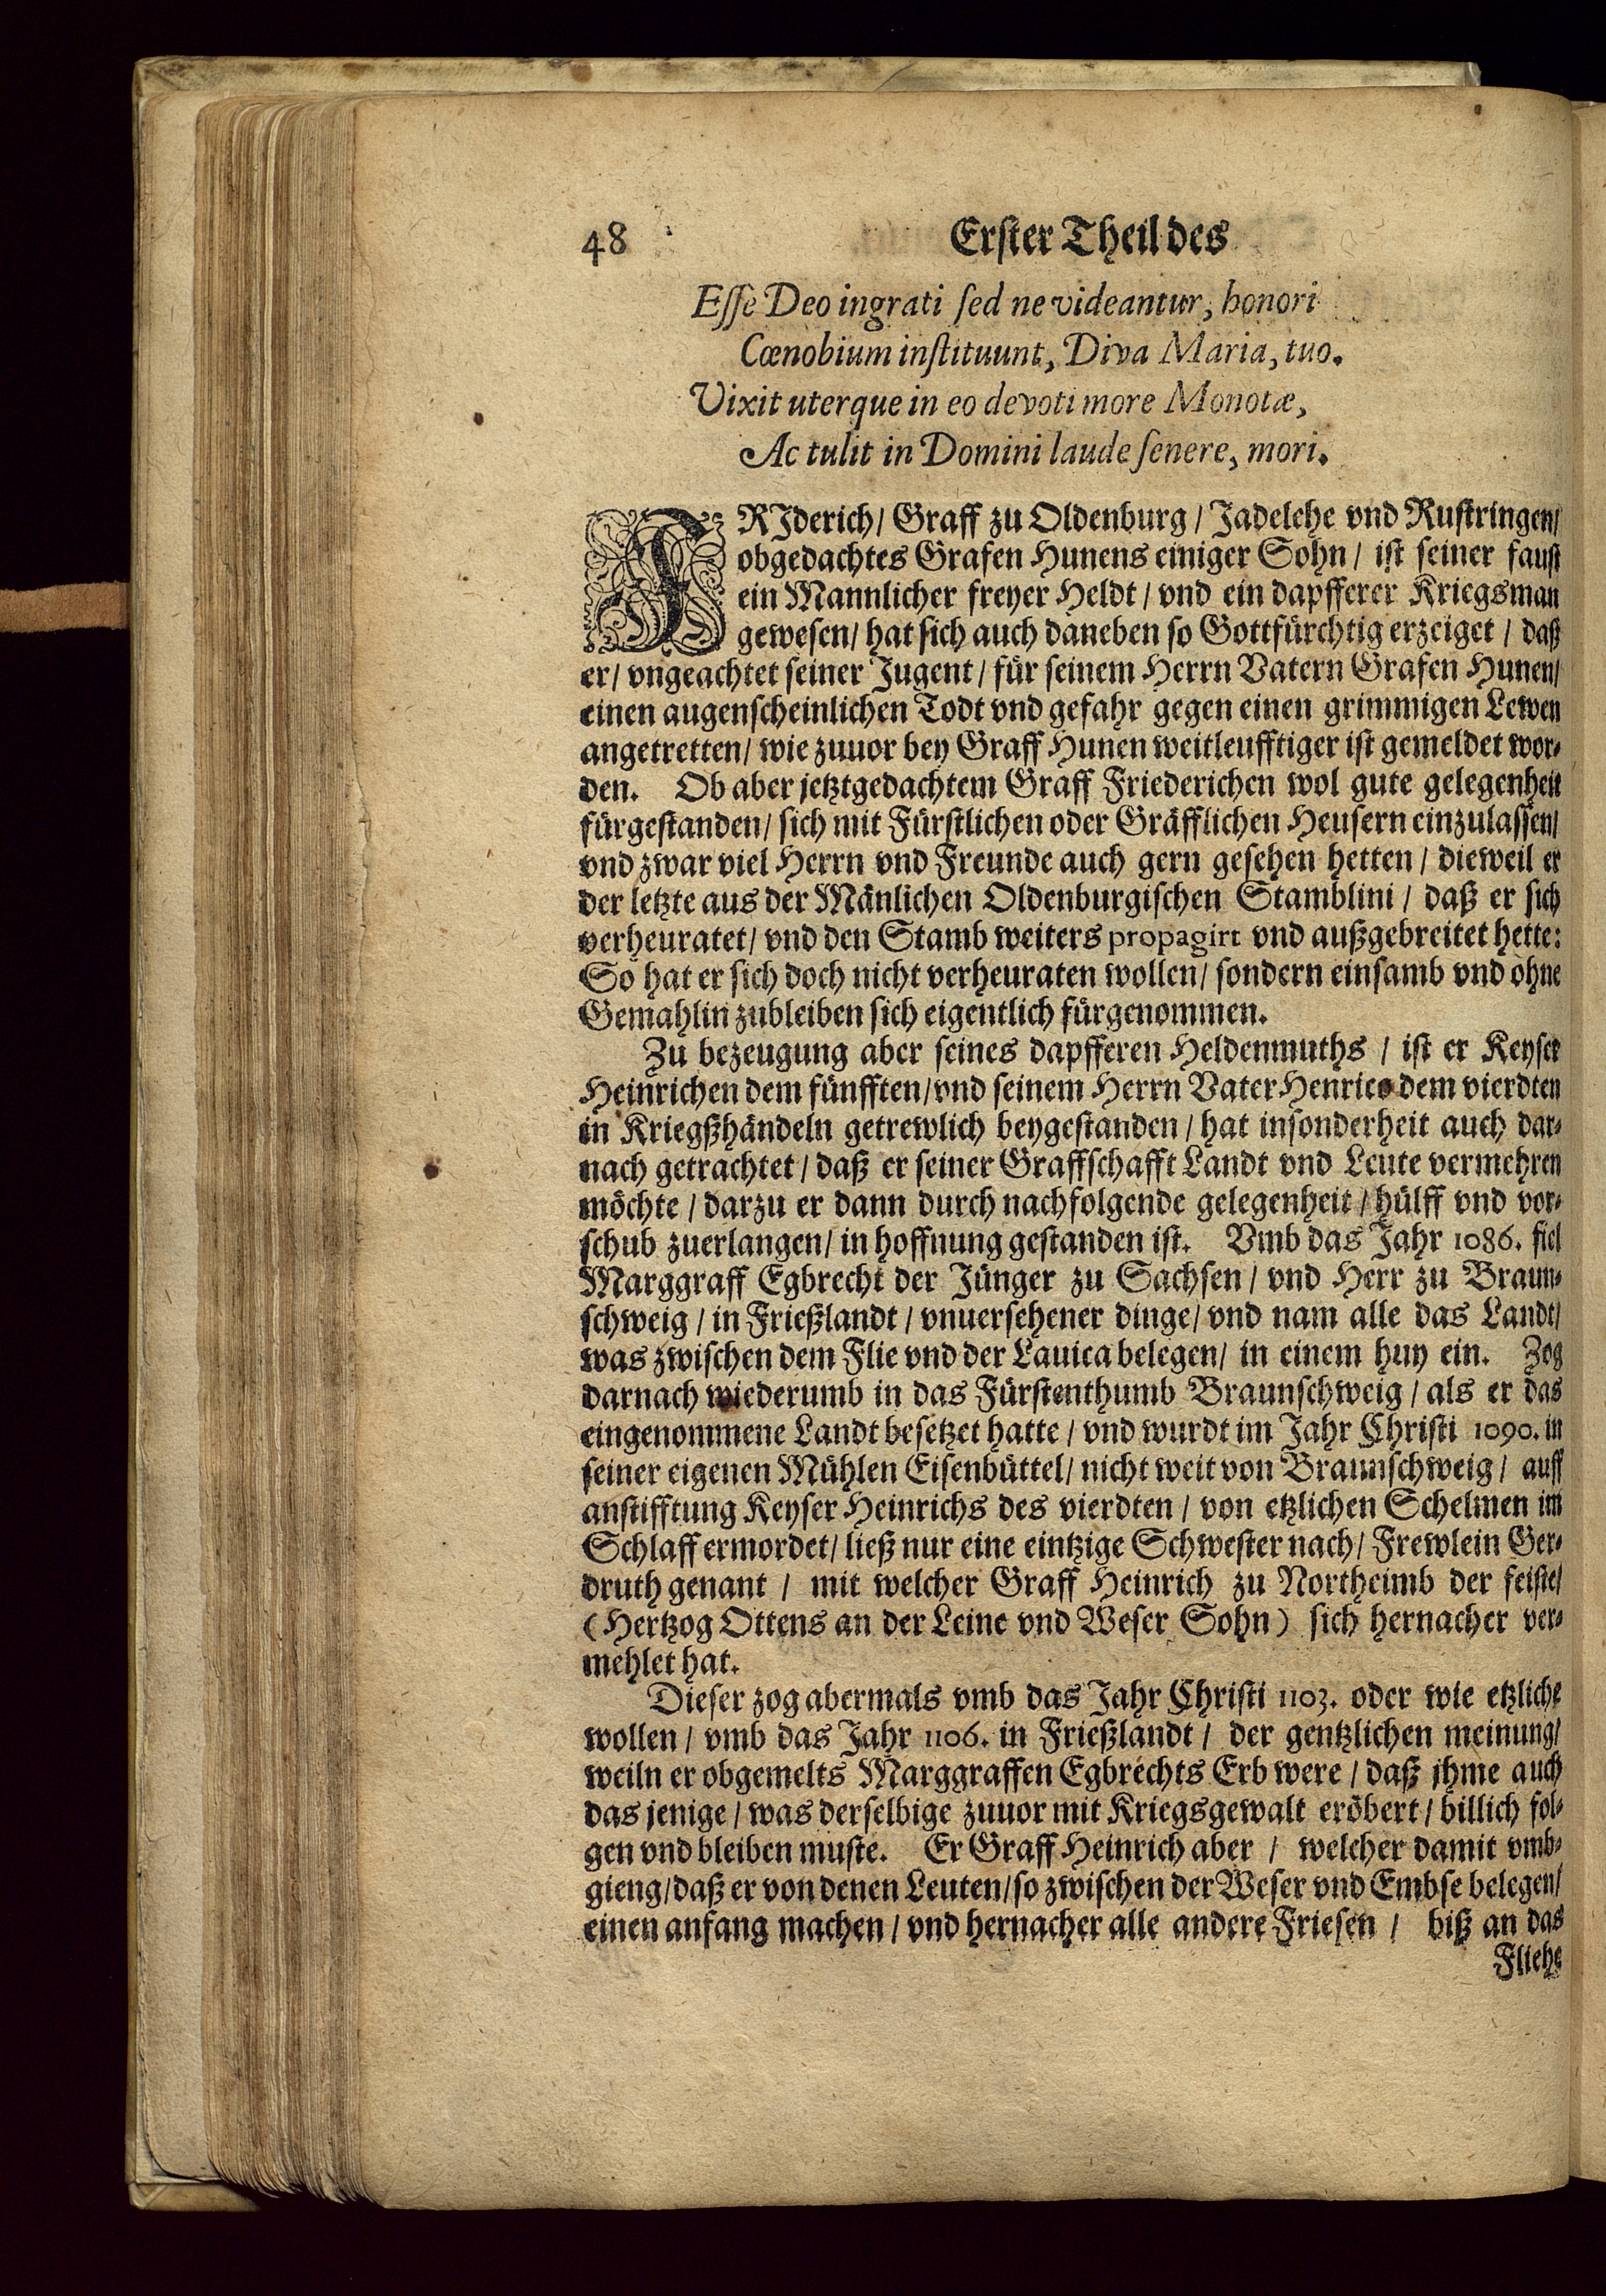 48 Erster Theil des
Esse Deo ingrati sed ne videantur, honori
Cœnobium instituunt, Diva Maria, tuo.
Vixit uterque in eo devoti more Monotæ,
Ac tulit in Domini laude senere, mori.
FRJderich/ Graff zu Oldenburg/ Jadelehe vnd Rustringen/
obgedachtes Grafen Hunens einiger Sohn/ ist seiner faust
ein Mannlicher freyer Heldt/ vnd ein dapfferer Kriegsman
gewesen/ hat sich auch daneben so Gottfürchtig erzeiget/ daß
er/ vngeachtet seiner Jugent/ für seinem Herrn Vatern Grafen Hunen/
einen augenscheinlichen Todt vnd gefahr gegen einen grimmigen Lewen
angetretten/ wie zuuor bey Graff Hunen weitleufftiger ist gemeldet wor-
den. Ob aber jetztgedachtem Graff Friederichen wol gute gelegenheit
fürgestanden/ sich mit Fürstlichen oder Gräfflichen Heusern einzulassen/
vnd zwar viel Herrn vnd Freunde auch gern gesehen hetten/ dieweil er
der letzte aus der Mänlichen Oldenburgischen Stamblini/ daß er sich
verheuratet/ vnd den Stamb weiters propagirt vnd außgebreitet hette:
So hat er sich doch nicht verheuraten wollen/ sondern einsamb vnd ohne
Gemahlin zubleiben sich eigentlich fürgenommen.
Zu bezeugung aber seines dapfferen Heldenmuths/ ist er Keyser
Heinrichen dem fünfften/ vnd seinem Herrn Vater Henrico dem vierdten
in Kriegßhändeln getrewlich beygestanden/ hat insonderheit auch dar-
nach getrachtet/ daß er seiner Graffschafft Landt vnd Leute vermehren
möchte/ darzu er dann durch nachfolgende gelegenheit/ hülff vnd vor-
schub zuerlangen/ in hoffnung gestanden ist. Vmb das Jahr 1086. fiel
Marggraff Egbrecht der Jünger zu Sachsen/ vnd Herr zu Braun-
schweig/ in Frießlandt/ vnuersehener dinge/ vnd nam alle das Landt/
was zwischen dem Flie vnd der Lauica belegen/ in einem huy ein. Zog
darnach wiederumb in das Fürstenthumb Braunschweig/ als er das
eingenommene Landt besetzet hatte/ vnd wurdt im Jahr Christi 1090. in
seiner eigenen Mühlen Eisenbüttel/ nicht weit von Braunschweig/ auff
anstifftung Keyser Heinrichs des vierdten/ von etzlichen Schelmen im
Schlaff ermordet/ ließ nur eine eintzige Schwester nach/ Frewlein Ger-
druth genant/ mit welcher Graff Heinrich zu Northeimb der feiste/
(Hertzog Ottens an der Leine vnd Weser Sohn) sich hernacher ver-
mehlet hat.
Dieser zog abermals vmb das Jahr Christi 1103. oder wie etzliche
wollen/ vmb das Jahr 1106. in Frießlandt/ der gentzlichen meinung/
weiln er obgemelts Marggraffen Egbrechts Erb were/ daß jhme auch
das jenige/ was derselbige zuuor mit Kriegsgewalt eröbert/ billich fol-
gen vnd bleiben muste. Er Graff Heinrich aber/ welcher damit vmb-
gieng/ daß er von denen Leuten/ so zwischen der Weser vnd Embse belegen/
einen anfang machen/ vnd hernacher alle andere Friesen/ biß an das
Fliehe